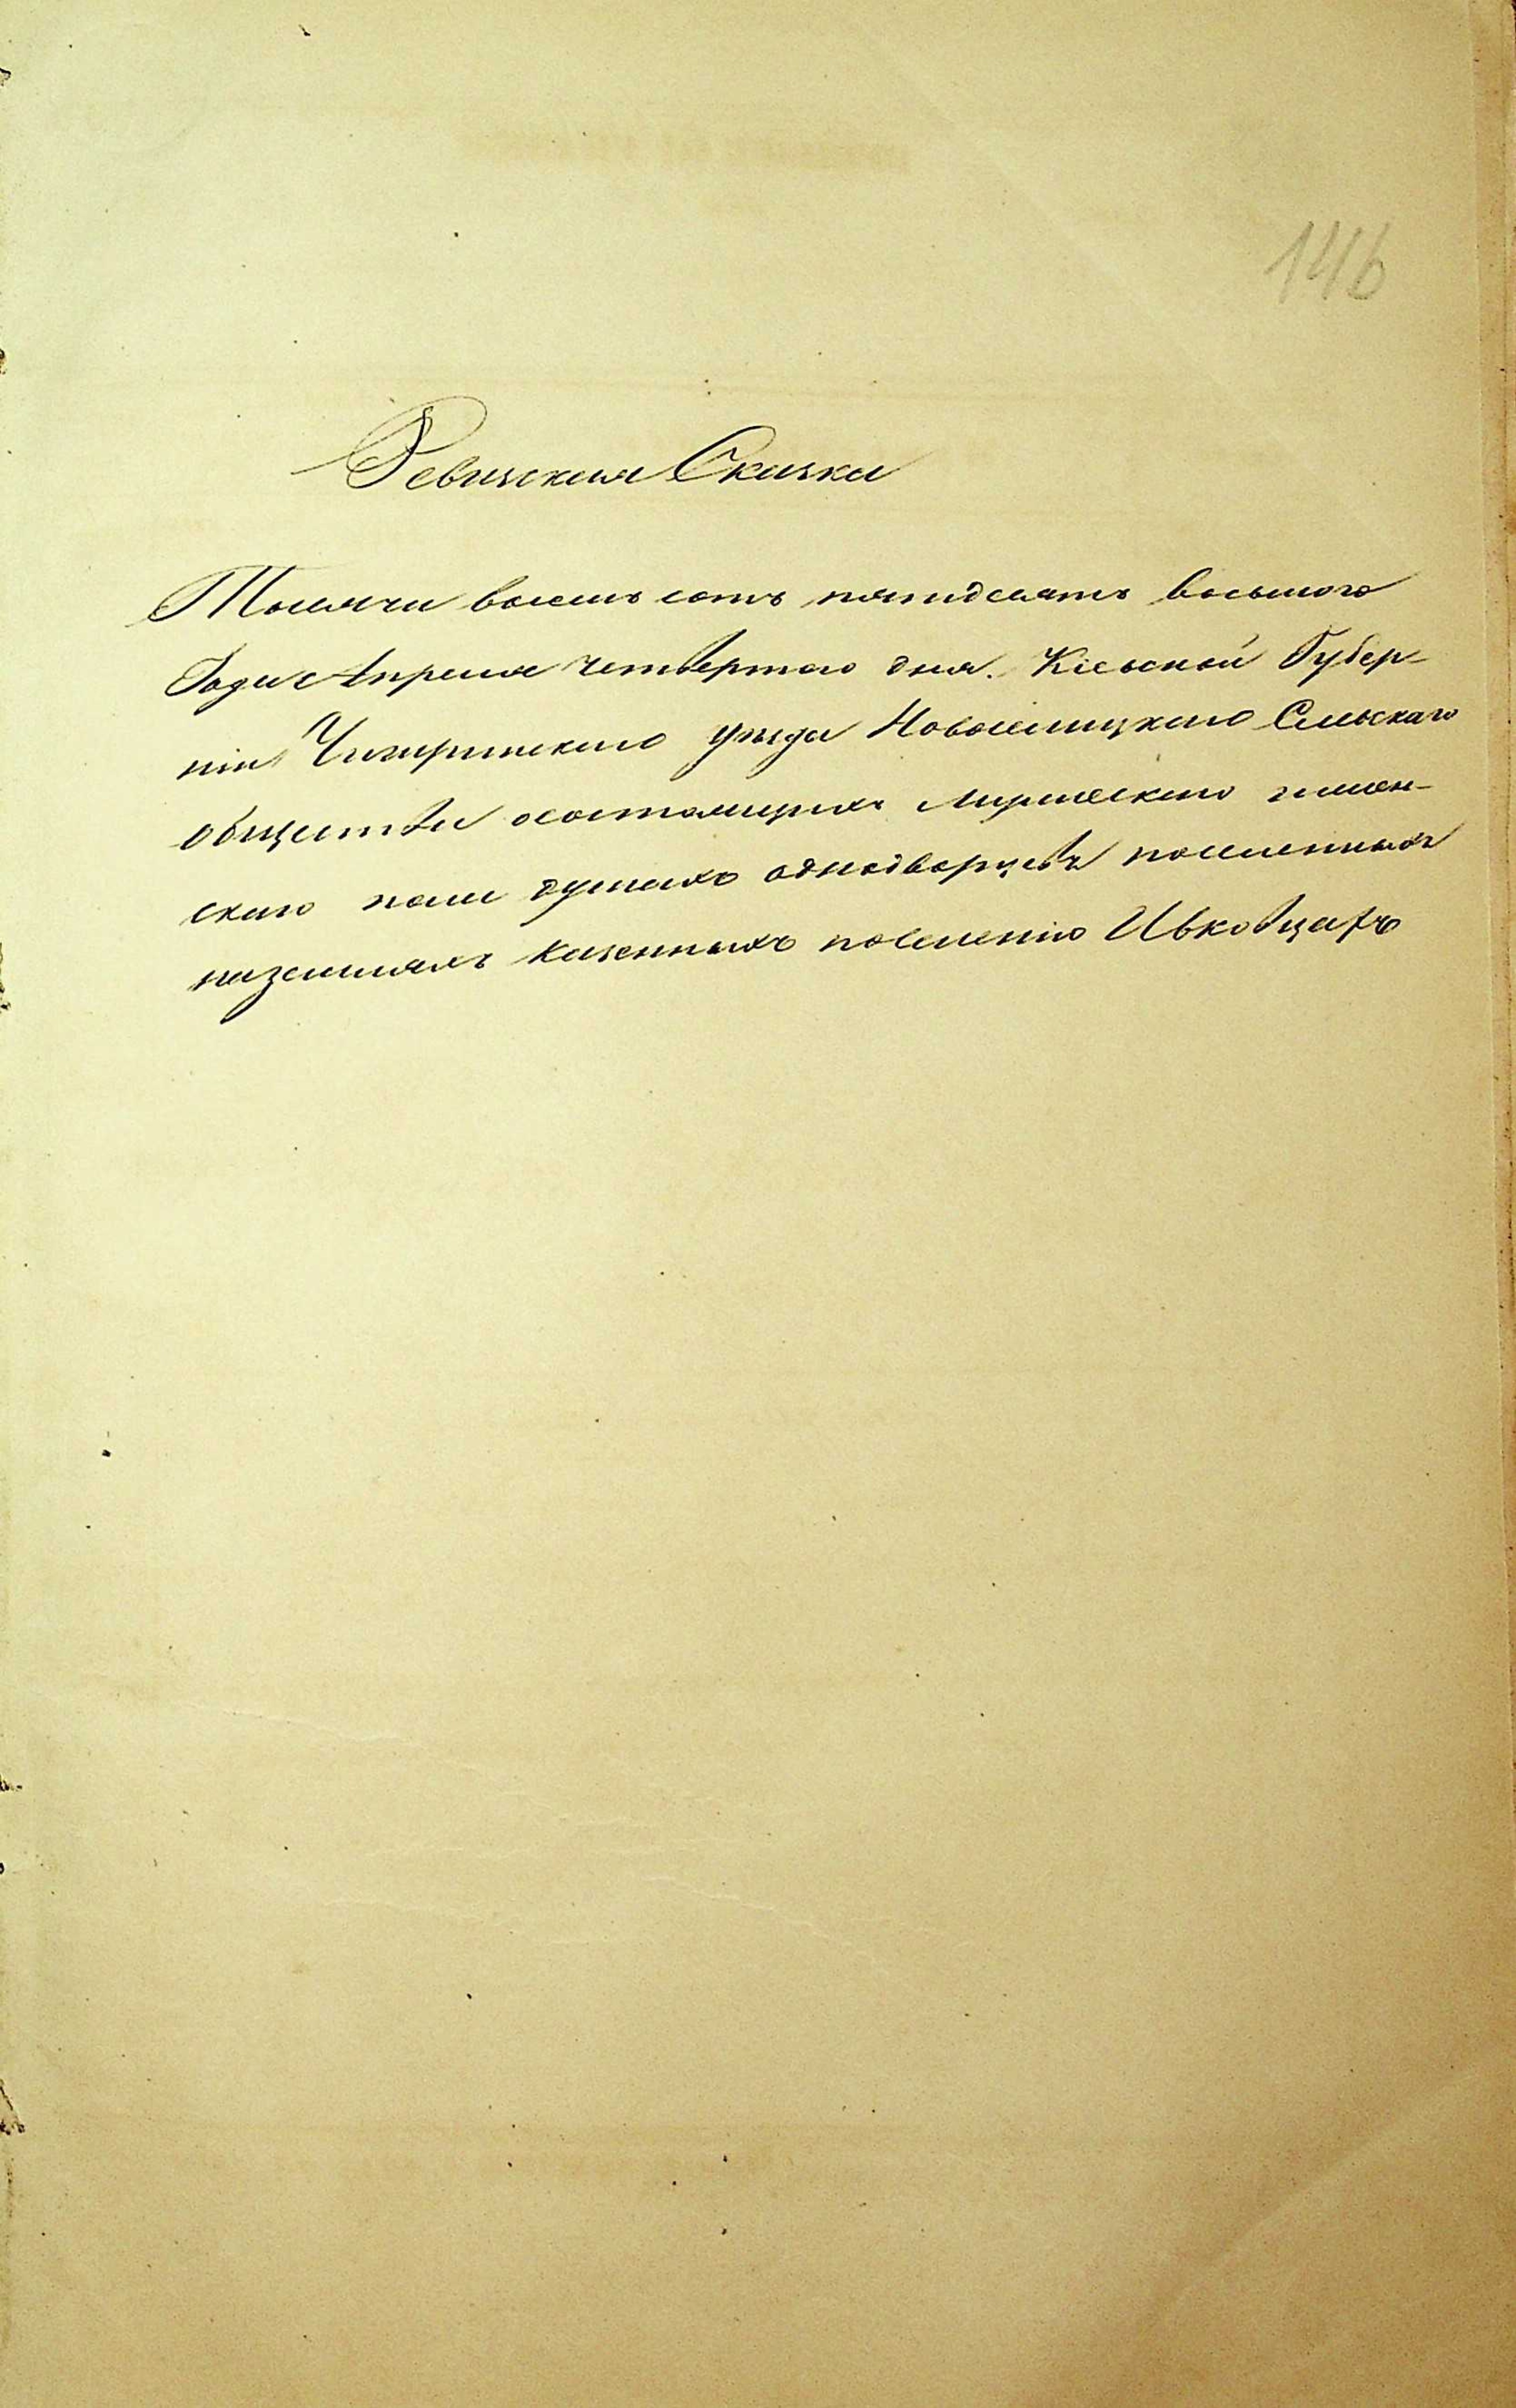 146
Ревизская Сказка
Тысячи восемь сотъ пятидесятъ восьмого
Года Апреля четвертаго дня. Кіевской Губер-
ніи Чигиринскаго уѣзда Новоселицкаго Сельскаго
общества осостоящихъ мужескаго и женъ-
скаго пола душахъ однодворцевъ поселенныхъ
наземляхъ казенныхъ поселенію Ивковцахъ